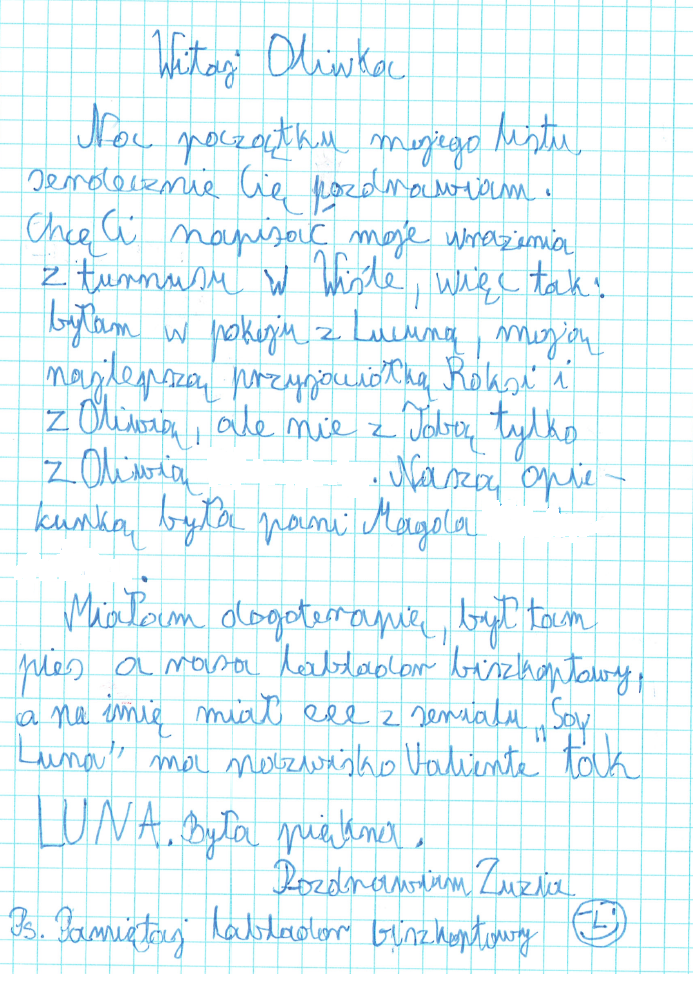 Witaj Oliwka
Na początku mojego listu
serdecznie Cię pozdrawiam.
Chcę Ci napisać moje wrażenia
z turnusu w Wiśle, więc tak:
byłam w pokoju z Lucuną, moją
najlepszą przyjaciółką Roksi i
z Oliwią, ale nie z Tobą tylko
z Oliwią . Naszą opie-
kunką była pani Magda
.
Miałam dogoterapię, był tam
pies a rasa lablador biszkoptowy,
a na imię miał eee z serialu „Soy
Luna" ma nazwisko Valiente" tak
LUNA. Była piękna.
Pozdrawiam Zuzia
Ps. Pamiętaj lablador biszkoptowy